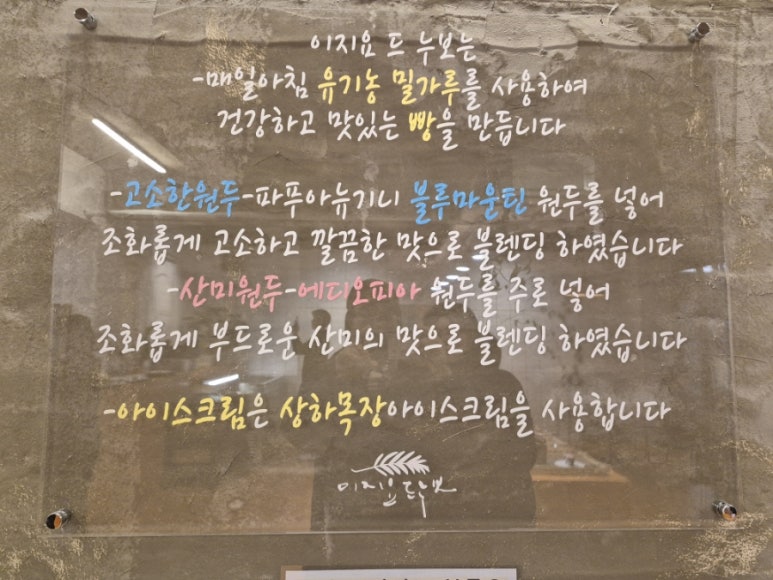 이지요 드 누보는
-매일아침 유기농 밀가루를 사용하여
건강하고 맛있는 빵을 만듭니다
-고소한원두-파푸아뉴기니 블루마운틴 원두를 넣어
조화롭게 고소하고 깔끔한 맛으로 블렌딩 하였습니다
-산미원두-에디오피아 원두를 주로 넣어
조화롭게 부드로운 산미의 맛으로 블렌딩 하였습니다
-아이스크림은 상하목장아이스크림을 사용합니다
이지요 드누보